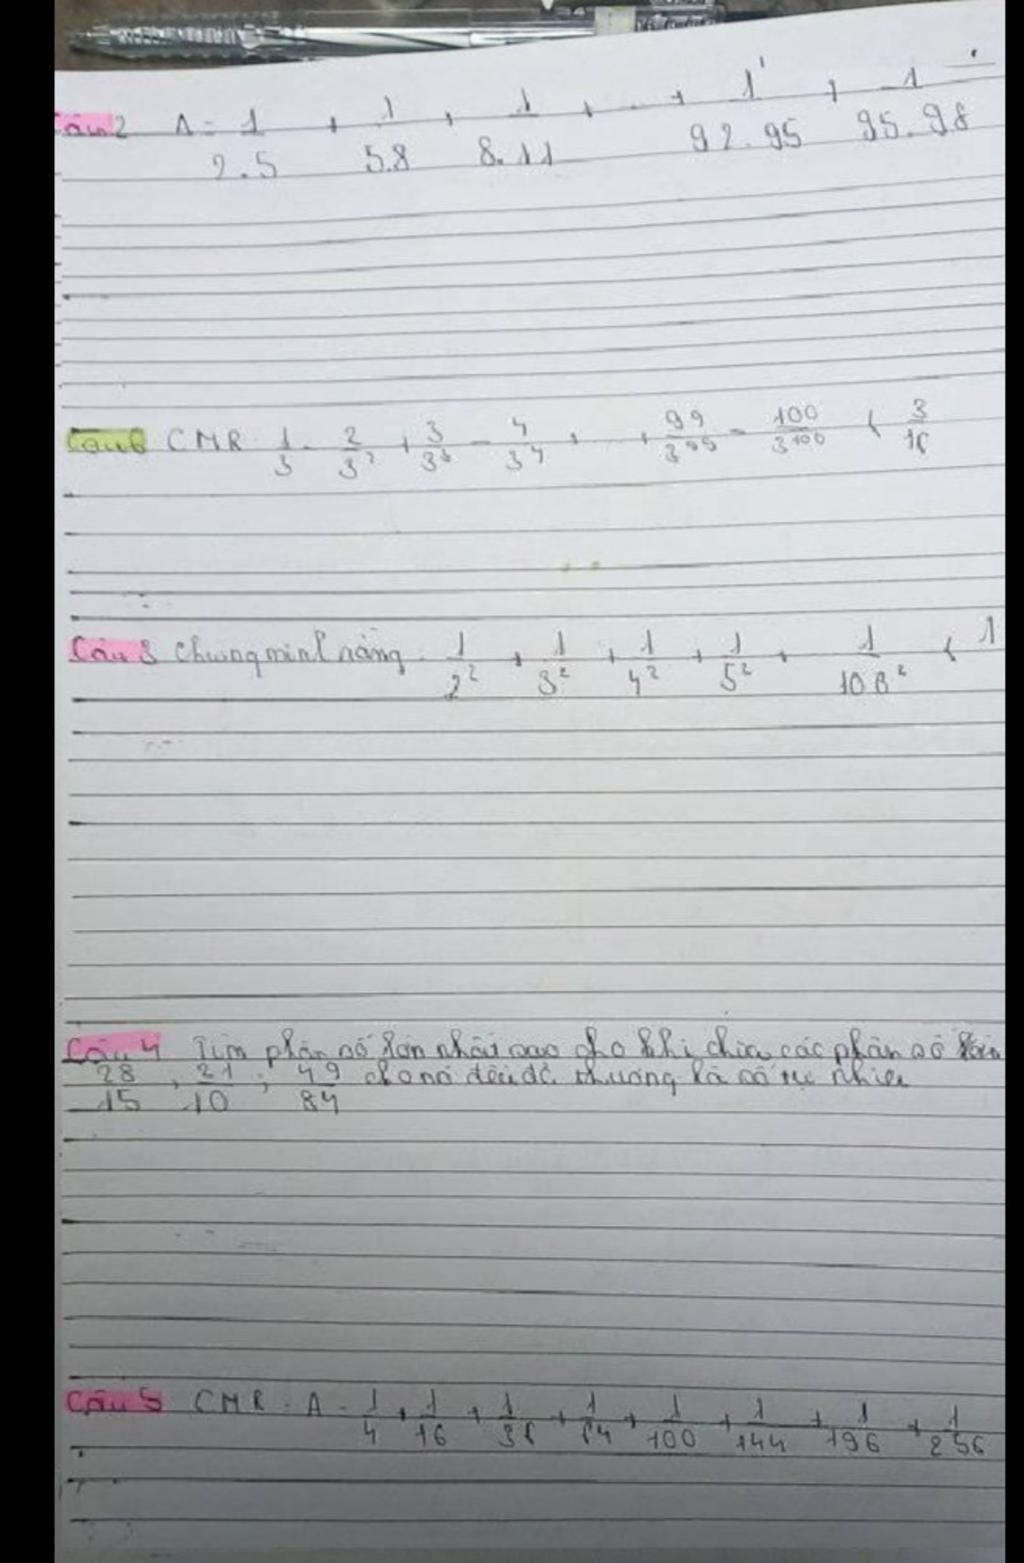 Câu 2 A = 1/2.5 + 1/5.8 + 1/8.11 + ... + 1/92.95 + 1/95.98
Câu 6 CMR 1/3 - 2/3² + 3/3³ - 4/3⁴ + ... + 99/3⁹⁹ - 100/3¹⁰⁰ < 3/16
Câu 3 Chứng minh rằng 1/2² + 1/3² + 1/4² + 1/5² + 1/100² < 1
Câu 4 Tìm phân số lớn nhất sao cho khi chia các phân số
28/15 ; 21/10 ; 49/84 cho nó đều đc thương là số tự nhiên
Câu 5 CMR. A = 1/4 + 1/16 + 1/36 + 1/64 + 1/100 + 1/144 + 1/196 + 1/256